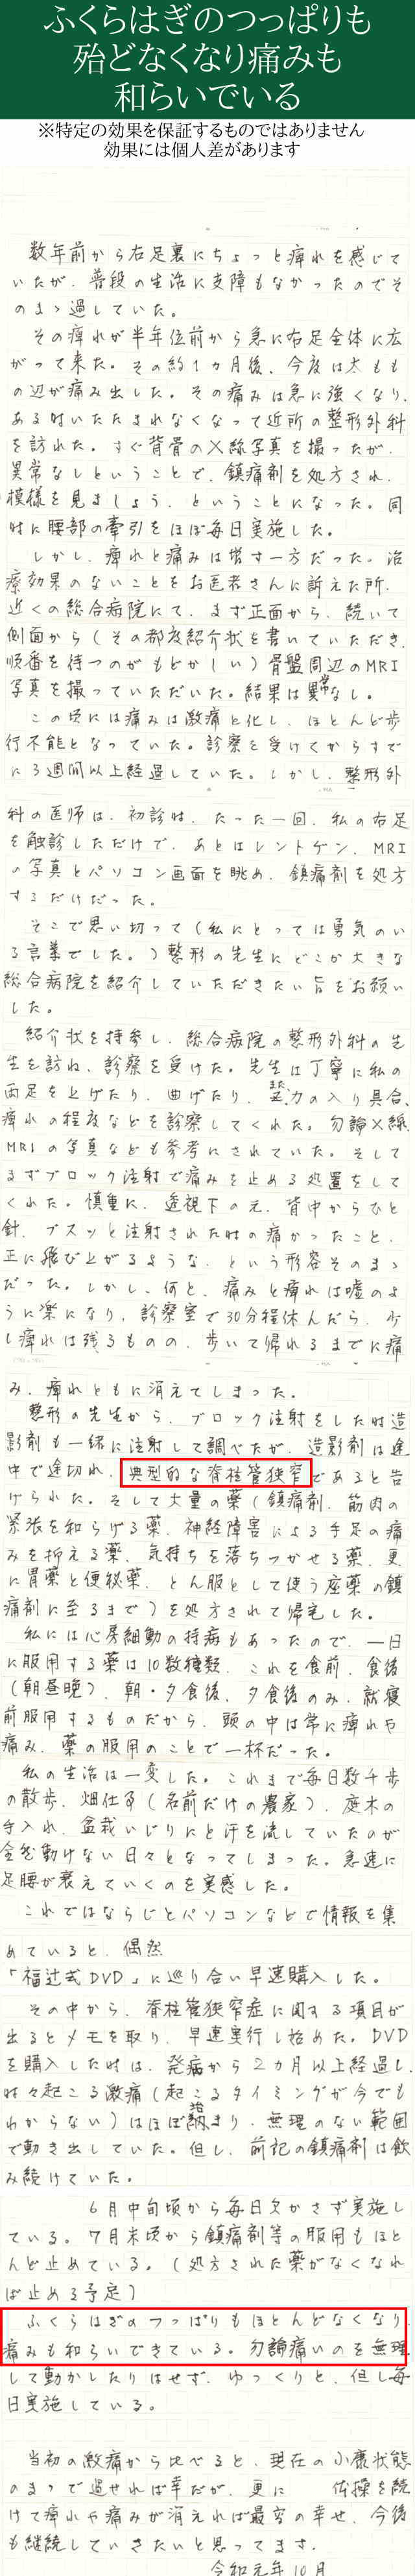 ふくらはぎのつっぱりも
殆どなくなり痛みも
和らいでいる
※特定の効果を保証するものではありません
効果には個人差があります
数年前から右足裏にちょっと痺れを感じて
いたが、普段の生活に支障もなかったのでそ
のまゝ過していた。
その痺れが半年位前から急に右足全体に広
がって来た。その約1カ月後、今度は太もも
の辺が痛み出した。その痛みは急に強くなり、
ある時いたたまれなくなって近所の整形外科
を訪れた。すぐ背骨のX線写真を撮ったが、
異常なしということで、鎮痛剤を処方され、
模様を見ましょう、ということになった。同
時に腰部の牽引をほぼ毎日実施した。
しかし、痺れと痛みは増す一方だった。治
療効果のないことをお医者さんに訴えた所、
近くの総合病院にて、まず正面から、続いて
側面から(その都度紹介状を書いていただき、
順番を待つのがもどかしい)骨盤周辺のMRI
写真を撮っていただいた。結果は異常なし。
この頃には痛みは激痛と化し、ほとんど歩
行不能となっていた。診察を受けてからすで
に3週間以上経過していた。しかし、整形外
科の医師は、初診時、たった一回、私の右足
を触診しただけで、あとはレントゲン、MRI
の写真とパソコン画面を眺め、鎮痛剤を処方
するだけだった。
そこで思い切って(私にとっては勇気のい
る言葉でした。)整形の先生にどこか大きな
総合病院を紹介していただきたい旨をお願い
した。
紹介状を持参し、総合病院の整形外科の先
生を訪ね、診察を受けた。先生は丁寧に私の
両足を上げたり、曲げたり、また、力の入り具合、
痺れの程度などを診察してくれた。勿論X線、
MRIの写真なども参考にされていた。そして
まずブロック注射で痛みを止める処置をして
くれた。慎重に、透視下の元、背中からひと
針、ブスッと注射された時の痛かったこと、
正に飛び上がるような、という形容そのまゝ
だった。しかし、何と、痛みと痺れは嘘のよ
うに楽になり、診察室で30分程休んだら、少
し痺れは残るものの、歩いて帰れるまでに痛
み、痺れともに消えてしまった。
整形の先生から、ブロック注射をした時造
影剤も一緒に注射して調べたが、造影剤は途
中で途切れ、典型的な脊柱管狭窄であると告
げられた。そして大量の薬(鎮痛剤、筋肉の
緊張を和らげる薬、神経障害による手足の痛
みを抑える薬、気持ちを落ちつかせる薬、更
に胃薬と便秘薬、とん服として使う座薬の鎮
痛剤に至るまで)を処方されて帰宅した。
私には心房細動の持病もあったので、一日
に服用する薬は10数種類、これを食前、食後
(朝昼晩)、朝・夕食後、夕食後のみ、就寝
前服用するものだから、頭の中は常に痺れや
痛み、薬の服用のことで一杯だった。
私の生活は一変した。これまで毎日数千歩
の散歩、畑仕事(名前だけの農家)、庭木の
手入れ、盆栽いじりにと汗を流していたのが
全然動けない日々となってしまった。急速に
足腰が衰えていくのを実感した。
これではならじとパソコンなどで情報を集
めていると、偶然
「福辻式DVD」に巡り合い早速購入した。
その中から、脊柱管狭窄症に関する項目が
出るとメモを取り、早速実行し始めた。DVD
を購入した時は、発病から2カ月以上経過し、
時々起こる激痛(起こるタイミングが今でも
わからない)はほぼ治まり、無理のない範囲
で動き出していた。但し、前記の鎮痛剤は飲
み続けていた。
6月中旬頃から毎日欠かさず実施し
ている。7月末頃から鎮痛剤等の服用もほと
んど止めている。(処方された薬がなくなれ
ば止める予定)
ふくらはぎのつっぱりもほとんどなくなり、
痛みも和らいできている。勿論痛いのを無理
して動かしたりはせず、ゆっくりと、但し毎
日実施している。
当初の激痛から比べると、現在の小康状態
のまゝで過せれば幸だが、更に 体操を続
けて痺れや痛みが消えれば最高の幸せ、今後
も継続していきたいと思ってます。
令和元年10月